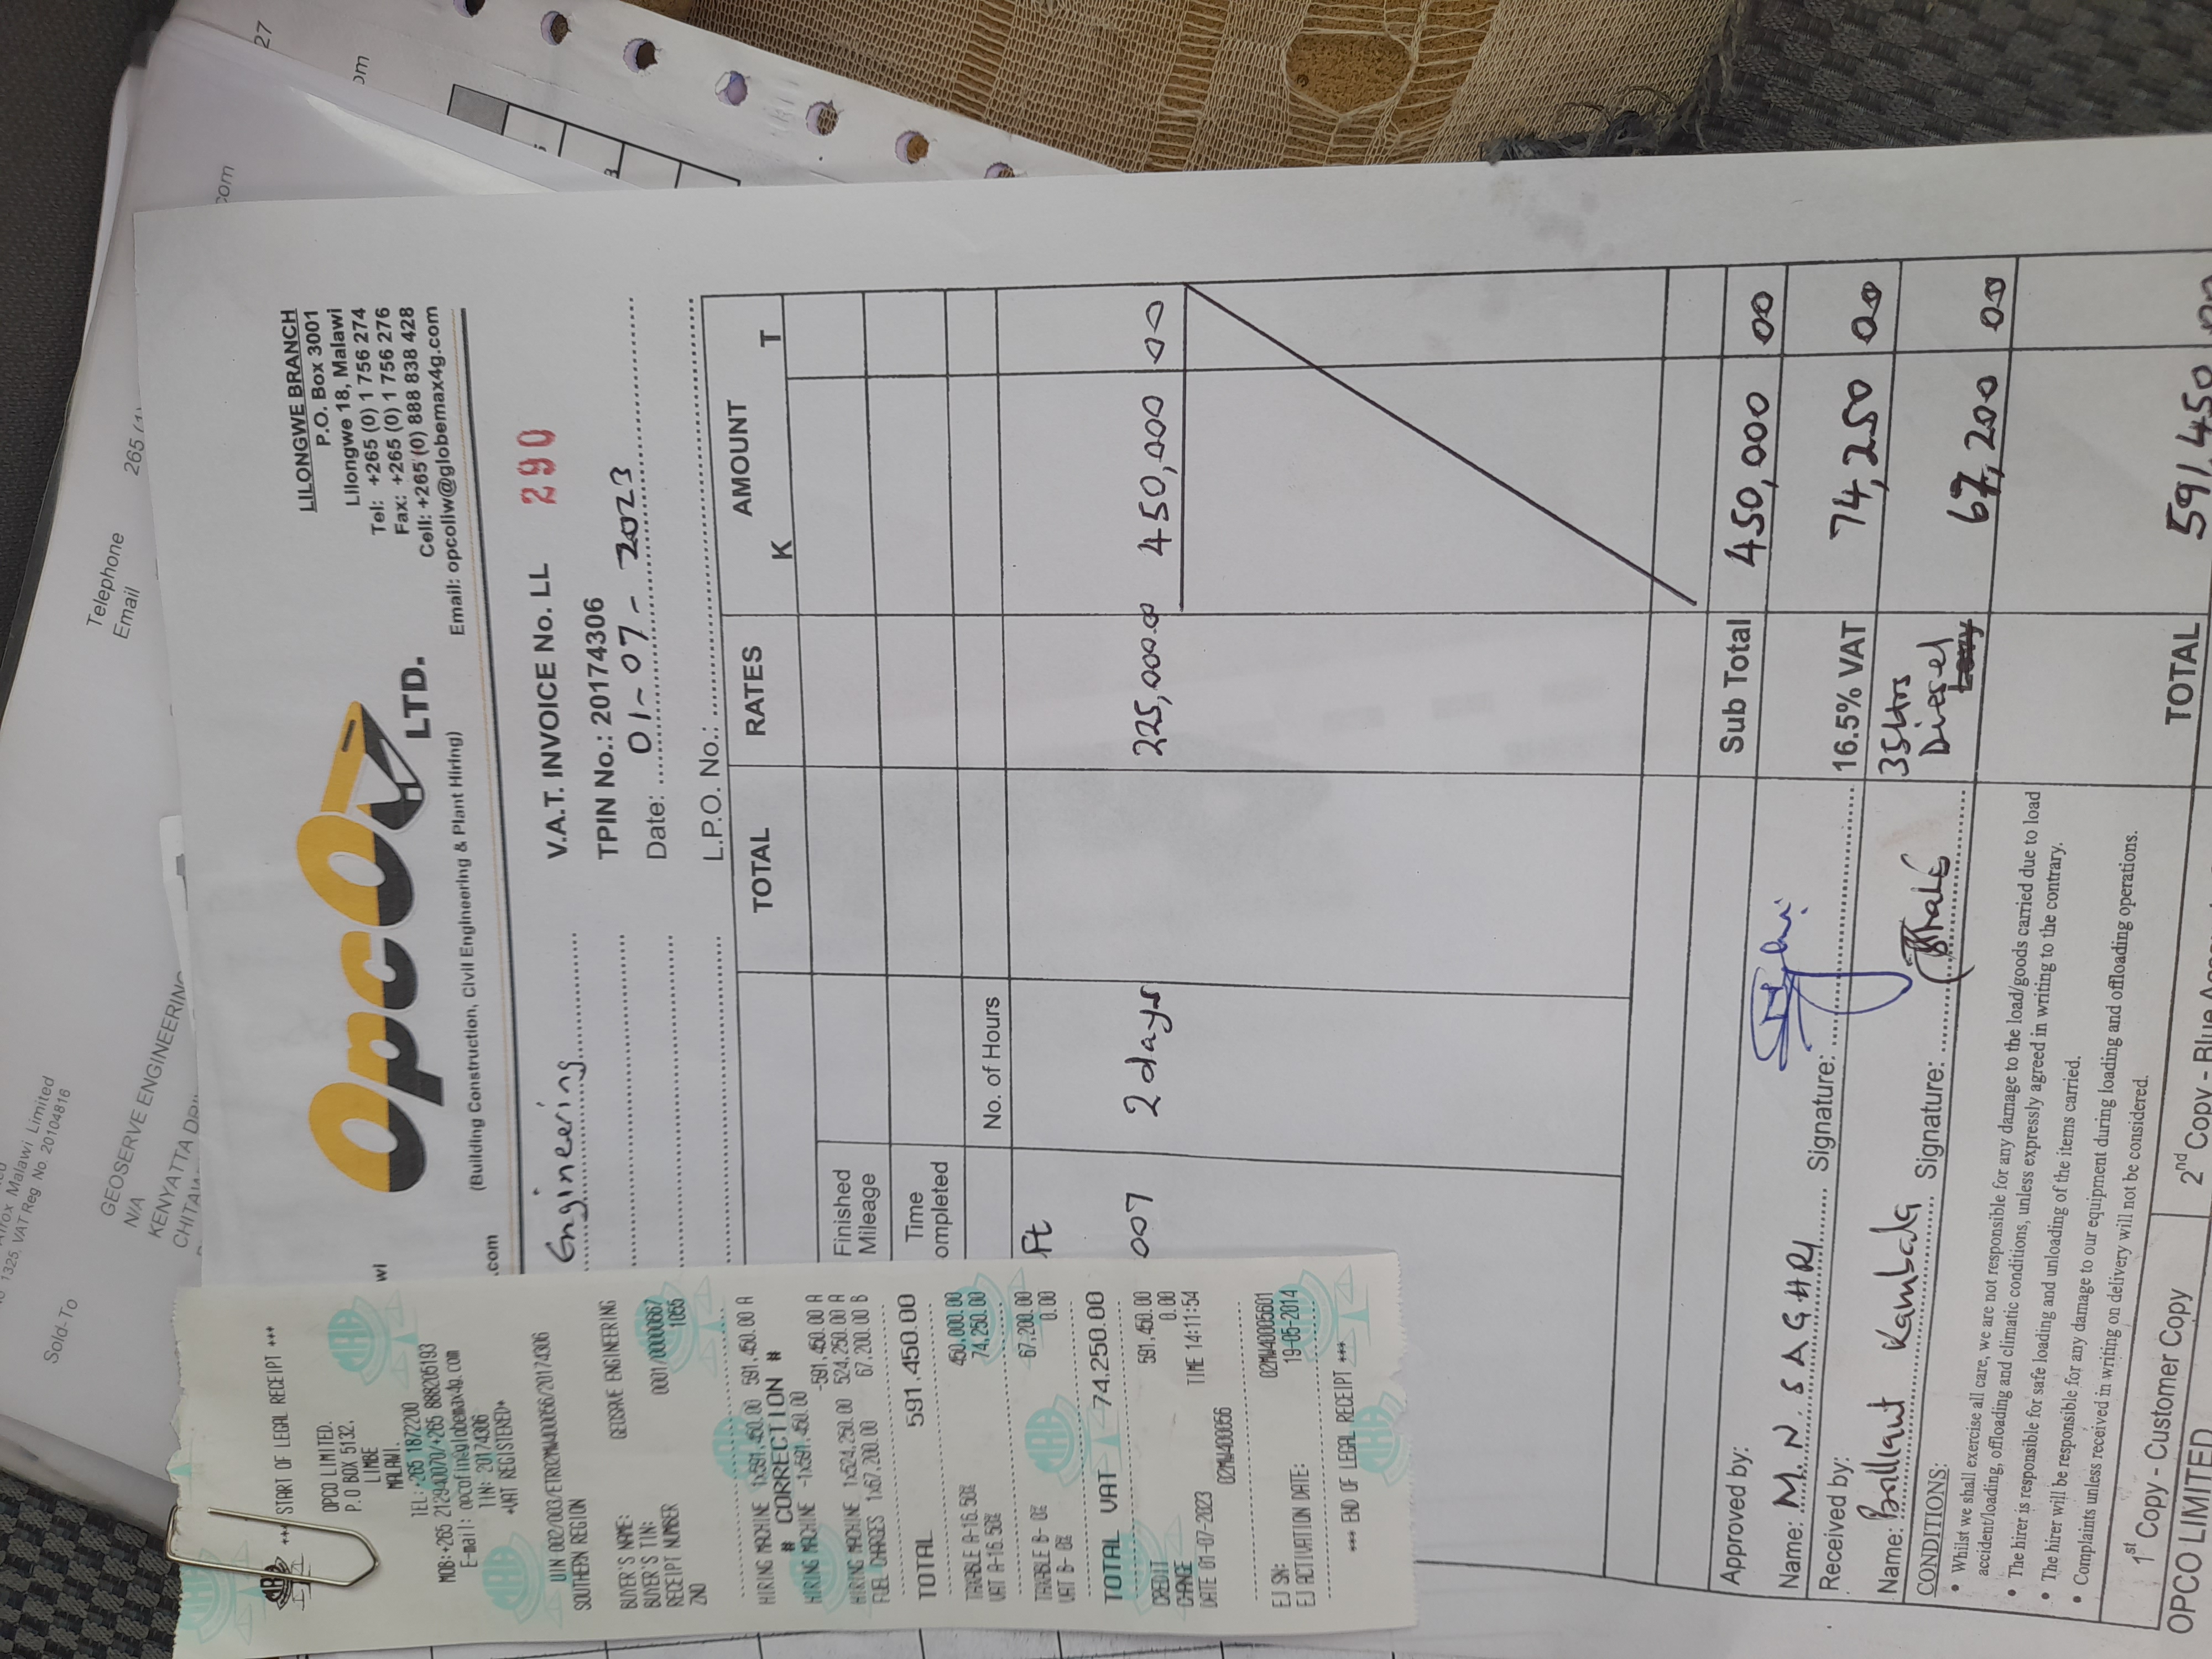 Malawi Limited
1325, VAT Reg. No. 20104816
Sold-To
GEOSERVE ENGINEERING
N/A
KENYATTA
Telephone
Email
265 (1)
com
27
*** START OF LEGAL RECEIPT ***
OPCO LIMITED.
P.O BOX 5132,
LIMBE
MALAWI.
TEL:+265 1872200
MOB:+265 212940070/+265 888205193
E-mail: opcofin@globemax4g.com
TIN: 20174306
*VAT REGISTERED*
UIN 002/003/ETR02MW400056/20174306
SOUTHERN REGION
BUYER'S NAME: GEOSAVE ENGINEERING
BUYER'S TIN:
RECEIPT NUMBER 0001/00000667
ZNO 1055
HIRING MACHINE 1x591,450.00 591,450.00 A
# CORRECTION #
HIRING MACHINE -1x591,450.00
-591,450.00 A
HIRING MACHINE 1x524,250.00 524,250.00 A
FUEL CHARGES 1x67,200.00 67,200.00 B
TOTAL 591,450.00
TAXABLE A-16.50% 450,000.00
VAT A-16.50% 74,250.00
TAXABLE B- 0% 67,200.00
VAT B- 0% 0.00
TOTAL VAT 74,250.00
CREDIT 591,450.00
CHANGE 0.00
DATE 01-07-2023 TIME 14:11:54
02MW400056
EJ SN: 02MW40005601
EJ ACTIVATION DATE: 19-05-2014
*** END OF LEGAL RECEIPT ***
wi
.com
Opco LTD.
(Building Construction, Civil Engineering & Plant Hiring)
LILONGWE BRANCH
P.O. Box 3001
Lilongwe 18, Malawi
Tel: +265 (0) 1 756 274
Fax: +265 (0) 1 756 276
Cell: +265 (0) 888 838 428
Email: opcoliw@globemax4g.com
Engineering
V.A.T. INVOICE No. LL 290
TPIN No.: 20174306
Date: 01-07-2023
L.P.O. No.:
TOTAL RATES AMOUNT
K T
Finished
Mileage
Time
ompleted
No. of Hours
Ft
007 2 days 225,000.00 450,000 00
Sub Total 450,000 00
Approved by:
Name: M.N. SAGHRI Signature:
16.5% VAT 74,250 00
Received by:
Name: Brilliant Kambala Signature:
35Ltrs
Diesel
67,200 00
CONDITIONS:
• Whilst we shall exercise all care, we are not responsible for any damage to the load/goods carried due to load
accident/loading, offloading and climatic conditions, unless expressly agreed in writing to the contrary.
• The hirer is responsible for safe loading and unloading of the items carried.
• The hirer will be responsible for any damage to our equipment during loading and offloading operations.
• Complaints unless received in writing on delivery will not be considered.
TOTAL 591,450 00
1st Copy - Customer Copy
2nd Copy - Blue
OPCO LIMITED